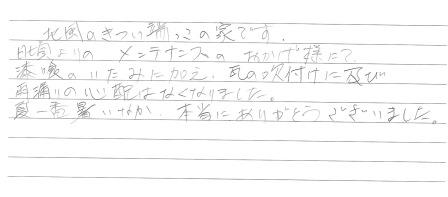 北風のきつい端っこの家です。
よりの メンテナンスの おかげ様にて
漆喰のいたみに加え、瓦の吹付けに及び
雨漏りの心配はなくなりました。
夏一番暑いなか、本当にありがとうございました。